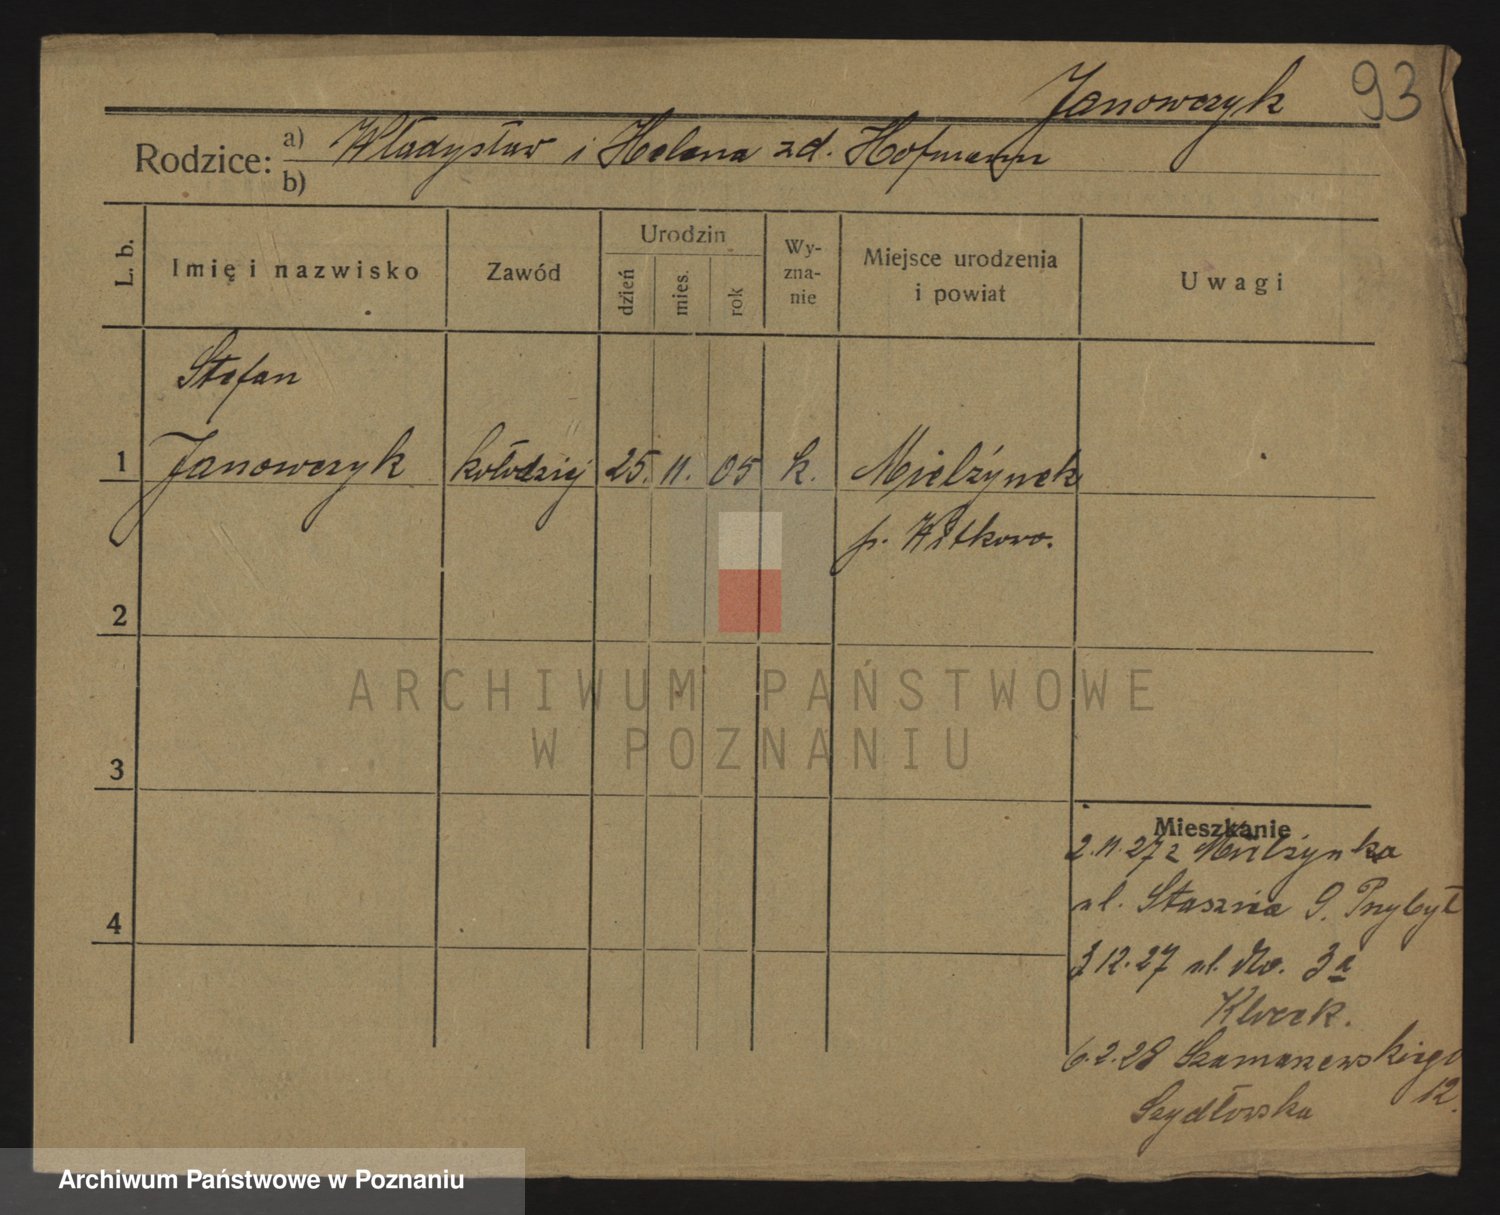 Janowczyk 93
Rodzice: a) Władysław i Helena zd. Hofmann
b)
L. b. Imię i nazwisko Zawód Urodzin dzień mies. rok Wy-zna-nie Miejsce urodzenia i powiat Uwagi
Stefan
1 Janowczyk kołodziej 25. 11. 05 k. Mielżynek
p. Witkowo.
2
ARCHIWUM PAŃSTWOWE
W POZNANIU
3
Mieszkanie
2.11.27 z Mielżynka
ul. Staszica 9. Przybył
4
3 12.27 ul. No. 3a
6.2.28 Szamarzewskiego
12.
Szydłowska
Archiwum Państwowe w Poznaniu